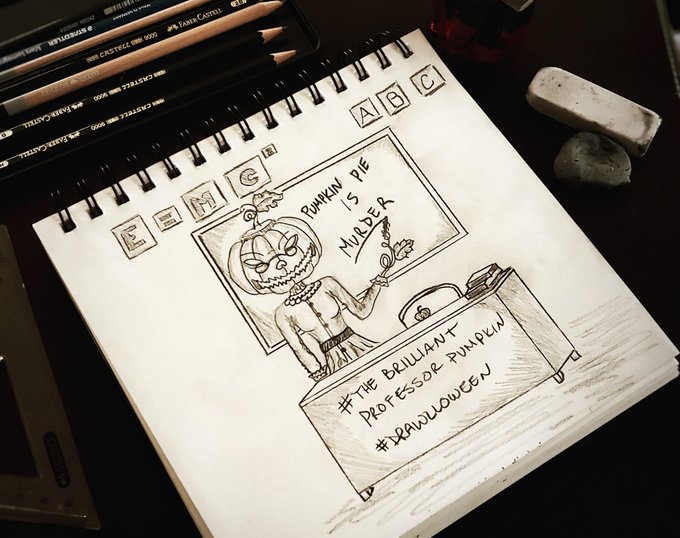 STAEDTLER
FABER-CASTELL
CASTELL 9000
FABER-CASTELL CASTELL 9000
E=MC²
A B C
PUMPKIN PIE
IS
MURDER
#THE BRILLIANT
PROFESSOR PUMPKIN
#DRAWLLOWEEN